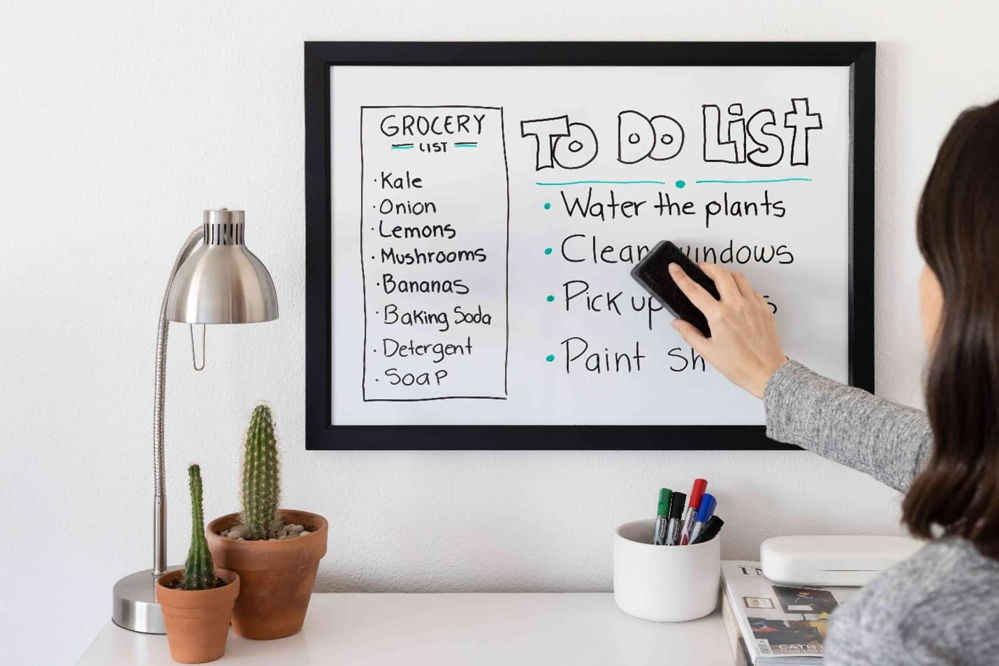 GROCERY
LIST
· Kale
· Onion
· Lemons
· Mushrooms
· Bananas
· Baking Soda
· Detergent
· SOAP
TO DO LiST
• Water the plants
• Clean windows
• Pick up
• Paint